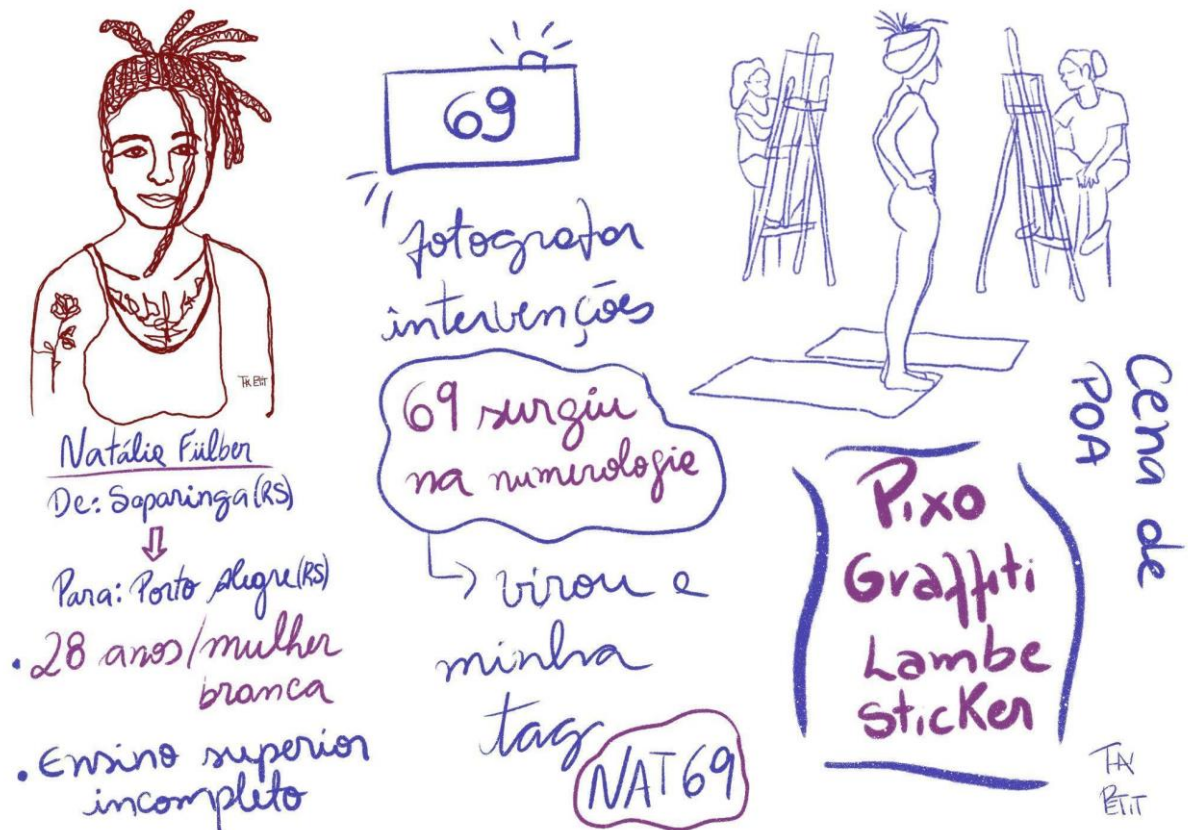 Natália Fülber
De: Saparinga (RS)
Para: Porto Alegre (RS)
• 28 anos/mulher
branca
• Ensino superior
incompleto
TAI PETIT
69
fotografar
intervenções
69 surgiu
na numerologia
virou a
minha
tag
NAT69
Cena de
POA
Pixo
Graffiti
Lambe
Sticker
TAI
PETIT